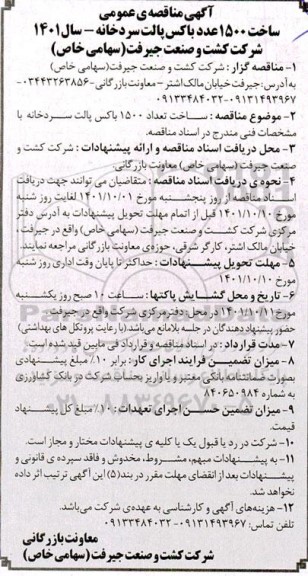 آگهی مناقصه ی عمومی
ساخت ۱۵۰۰ عدد باکس پالت سردخانه – سال ۱۴۰۱
شرکت کشت و صنعت جیرفت (سهامی خاص)
۱- مناقصه گزار : شرکت کشت و صنعت جیرفت(سهامی خاص)
به آدرس: جیرفت خیابان مالک اشتر – معاونت بازرگانی ۰۳۴۴۳۲۶۳۸۵۶-
۰۹۱۳۱۴۹۳۹۶۷-۰۹۱۳۳۴۸۴۰۳۲
۲- موضوع مناقصه : ساخت تعداد ۱۵۰۰ باکس پالت سردخانه با
مشخصات فنی مندرج در اسناد مناقصه.
۳- محل دریافت اسناد مناقصه و ارائه پیشنهادات : شرکت کشت و
صنعت جیرفت (سهامی خاص) معاونت بازرگانی.
۴- نحوه ی دریافت اسناد مناقصه : متقاضیان می توانند جهت دریافت
اسناد مناقصه از روز پنجشنبه مورخ ۱۴۰۱/۱۰/۰۱ لغایت روز شنبه
مورخ ۱۴۰۱/۱۰/۱۰ قبل از اتمام مهلت تحویل پیشنهادات به آدرس دفتر
مرکزی شرکت کشت و صنعت جیرفت (سهامی خاص) واقع در جیرفت،
خیابان مالک اشتر، کارگر شرقی، حوزه ی معاونت بازرگانی مراجعه نمایند.
۵- مهلت تحویل پیشنهادات : حداکثر تا پایان وقت اداری روز شنبه
مورخ ۱۴۰۱/۱۰/۱۰
۶- تاریخ و محل گشایش پاکتها : ساعت ۱۰ صبح روز یکشنبه
مورخ ۱۴۰۱/۱۰/۱۱ در محل: دفتر مرکزی شرکت واقع در جیرفت.
حضور پیشنهاد دهندگان در جلسه بلامانع می باشد (با رعایت پروتکل های بهداشتی)
۷- مدت قرارداد : در اسناد مناقصه و قرارداد فی مابین قید شده است.
۸- میزان تضمین فرآیند اجرای کار: برابر ۱۰٪ مبلغ پیشنهادی
بصورت ضمانتنامه بانکی معتبر و یا واریز بحساب شرکت در بانک کشاورزی
به شماره ۸۴۰۶۵۰۹۸۴
۹- میزان تضمین حسن اجرای تعهدات : ۱۰٪ مبلغ کل پیشنهاد
قیمت.
۱۰- شرکت در رد یا قبول یک یا کلیه ی پیشنهادات مختار و مجاز است.
۱۱- به پیشنهادات مبهم، مشروط، مخدوش و فاقد سپرده ی قانونی و
پیشنهادات بعد از انقضای مهلت مقرر در بند (۵) این آگهی ترتیب اثر داده
نخواهد شد.
۱۲- هزینه های آگهی و کارشناسی به عهده ی شرکت می باشد.
تلفن تماس: ۰۹۱۳۱۴۹۳۹۶۷- ۰۹۱۳۳۴۸۴۰۳۲
معاونت بازرگانی
شرکت کشت و صنعت جیرفت (سهامی خاص)